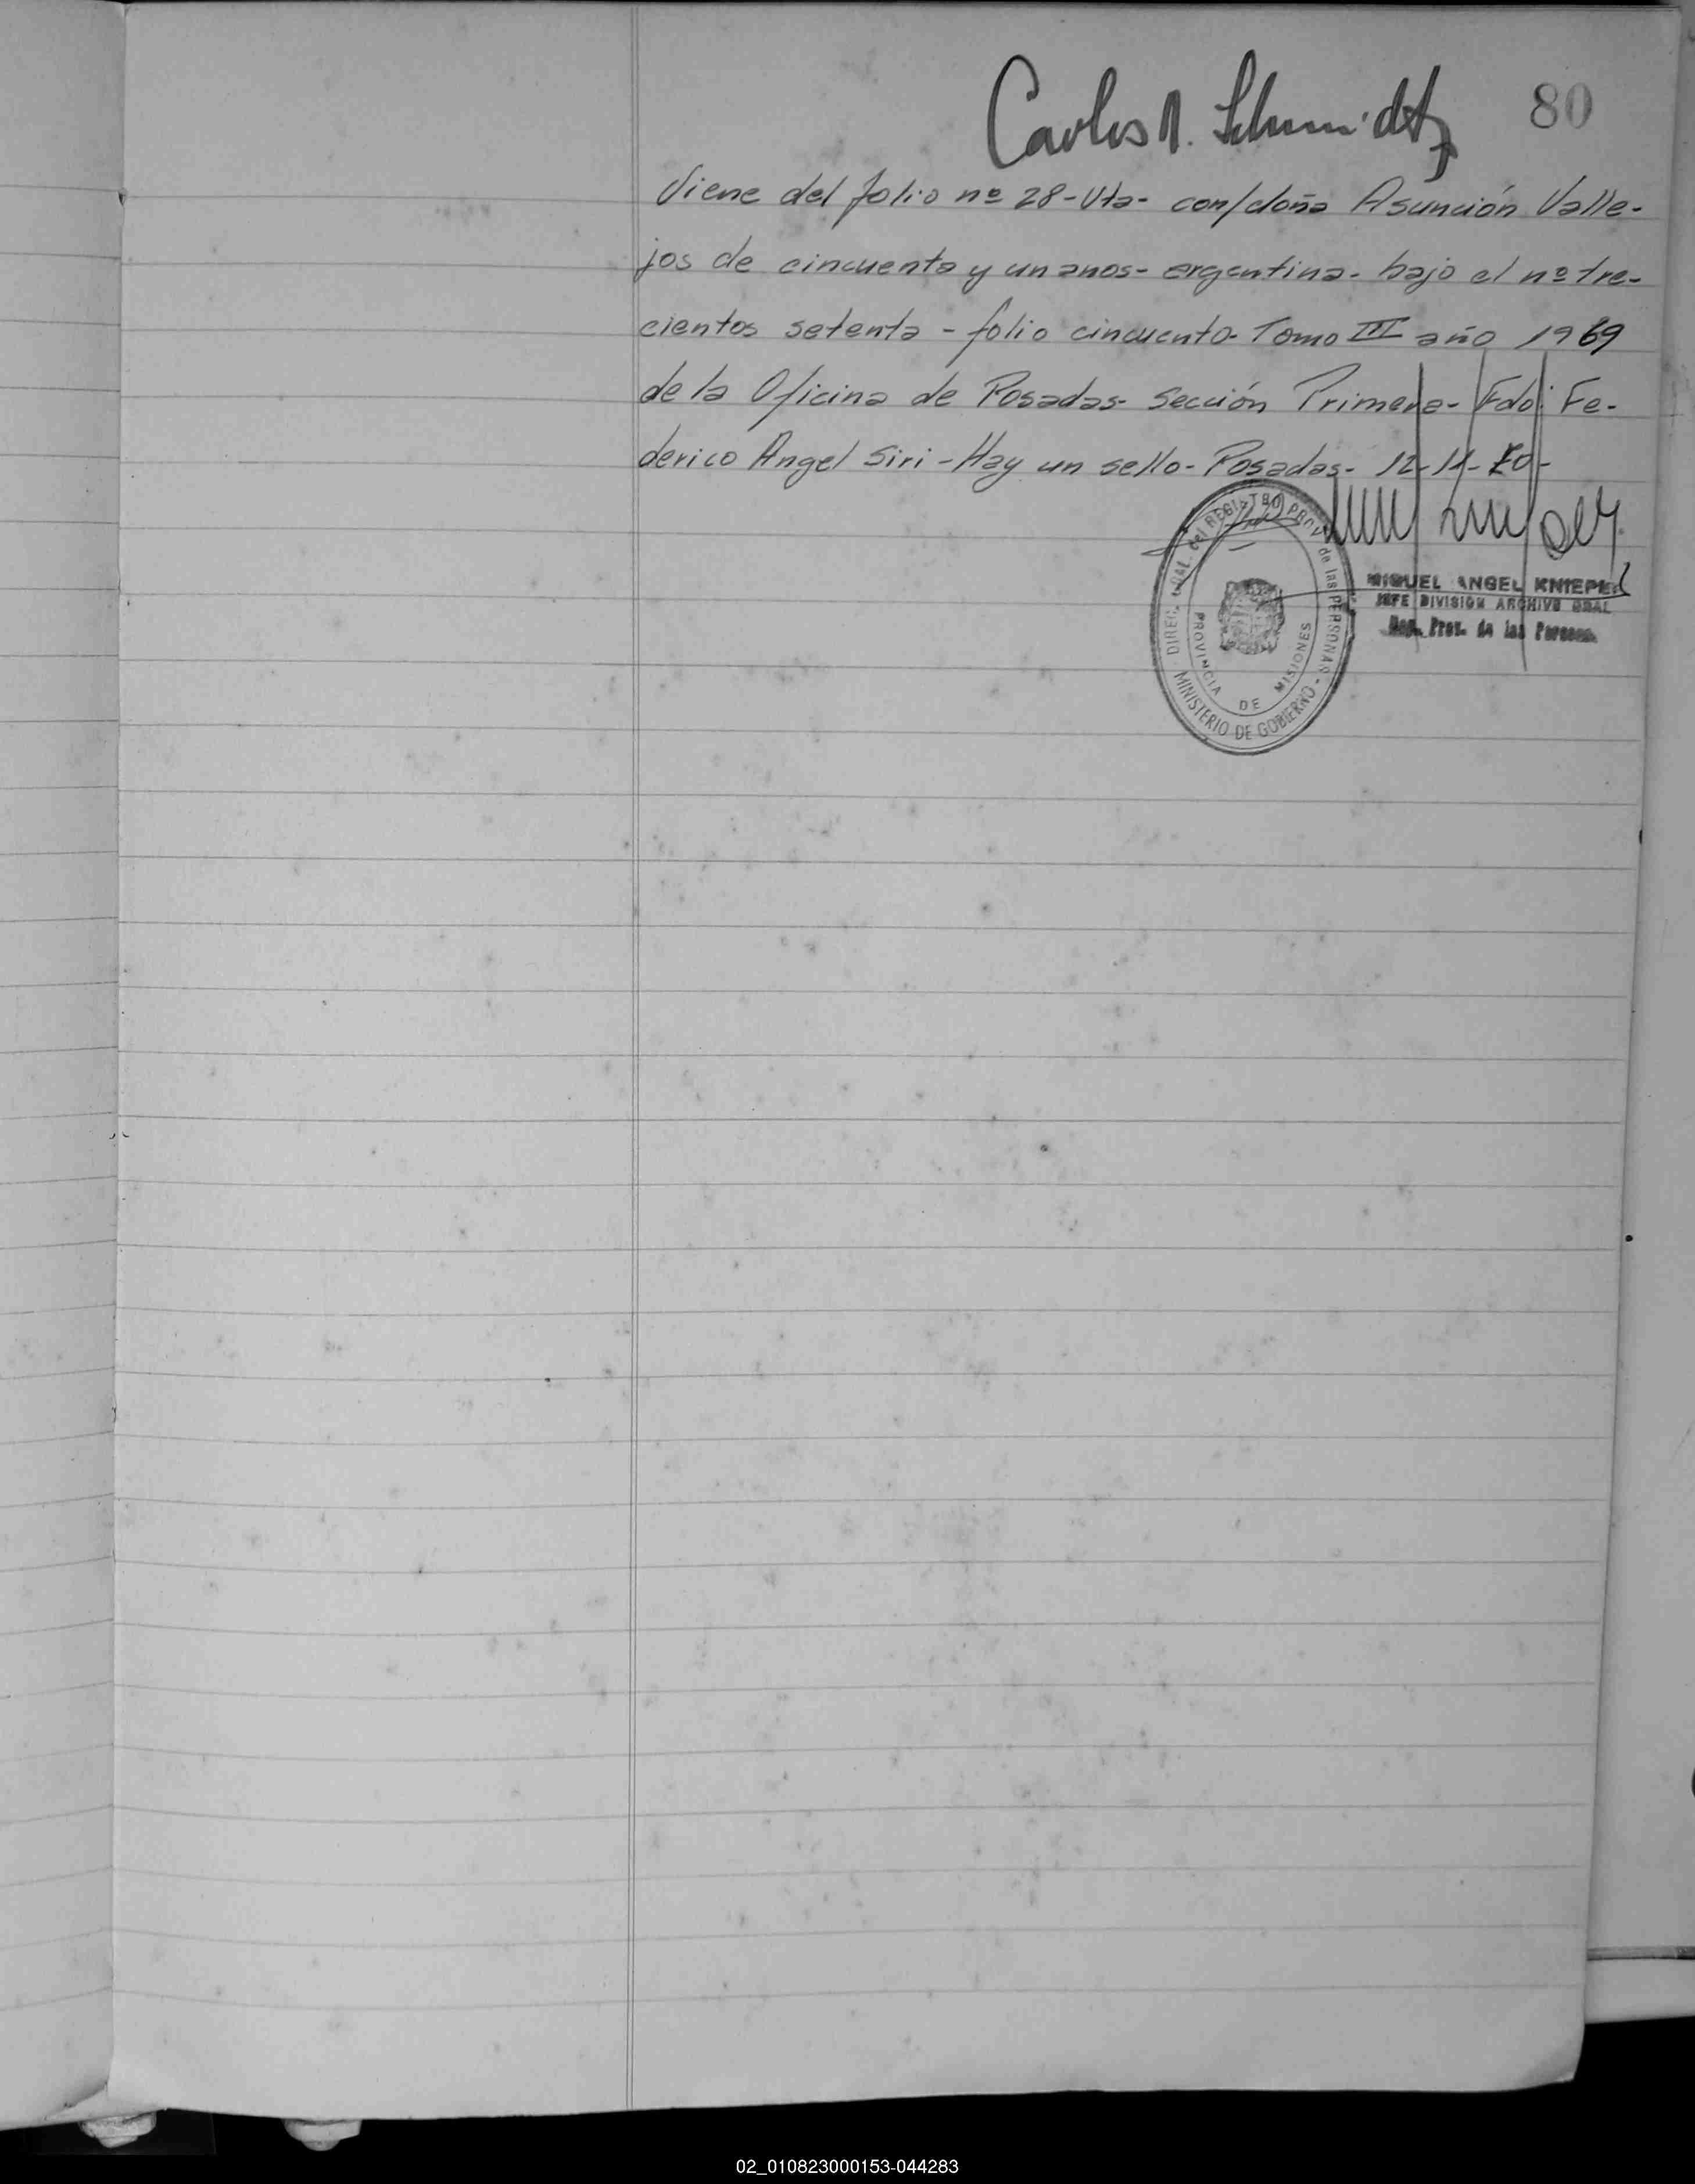 Carlos A. Schmidt
80
Viene del folio nº 28-Vta- con/doña Asunción Valle-
jos de cincuenta y un anos- argentina- bajo el nº tre-
cientos setenta - folio cincuenta- Tomo III año 1969
de la Oficina de Posadas- Sección Primera- Fdo: Fe-
derico Angel Siri - Hay un sello- Posadas- 12-11-70-
DIREC. GRAL. del REGISTRO PROV. de las PERSONAS
PROVINCIA DE MISIONES
MINISTERIO DE GOBIERNO
MIGUEL ANGEL KNIEPER
JEFE DIVISION ARCHIVO GRAL
Reg. Prov. de las Personas
02_010823000153-044283